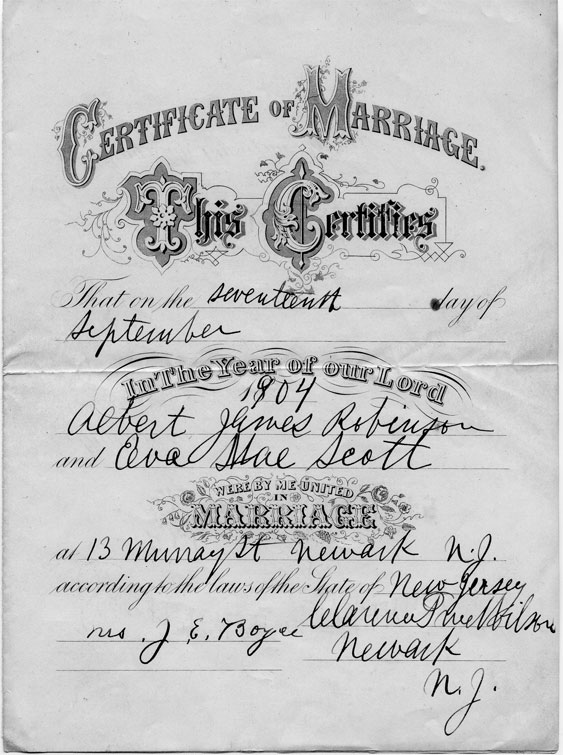 CERTIFICATE OF MARRIAGE.
This Certifies
That on the seventeenth day of
September
In The Year of our Lord
1904
Albert James Robinson
and Eva Mae Scott
WERE BY ME UNITED
IN
MARRIAGE
at 13 Murray St Newark N.J.
according to the laws of the State of New Jersey
Clarence Wilson
Mrs. J E. Boyce
Newark
N.J.